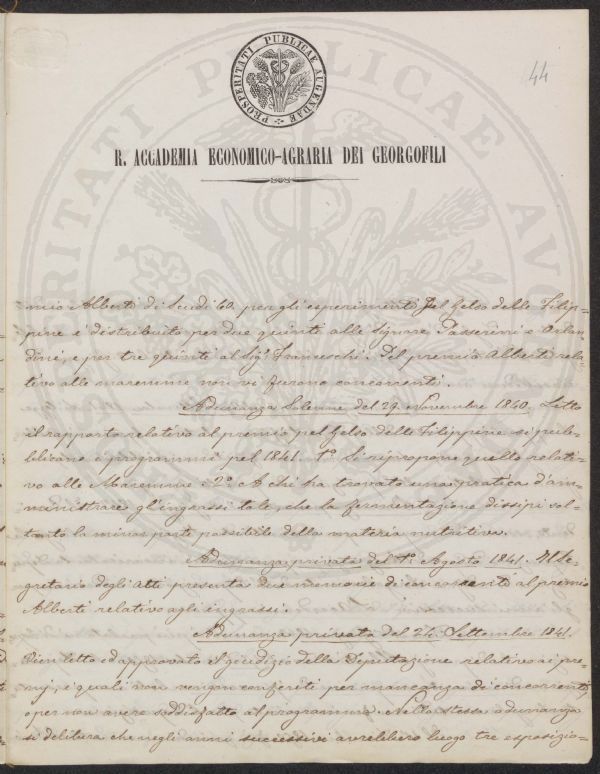 44
PROSPERITATI PUBLICAE AUGENDAE
R. ACCADEMIA ECONOMICO-AGRARIA DEI GEORGOFILI
mio Alberti di Scudi 60. per gli esperimenti pel Gelso delle Filip=
pine è distribuito per due quinti alle Signore Passerini e Orlan
dini, e per tre quinti al Sig.r Franceschi. Del premio Alberti rela
tivo alle maremme non vi furono concorrenti.
Adunanza Solenne del 29. Novembre 1840. Letto
il rapporto relativo al premio pel Gelso delle Filippine si pub=
blicano i programmi pel 1841. 1.o Si ripropone quello relati=
vo alle Maremme: 2.o A chi ha trovato una pratica d'am=
ministrare gl'ingrassi tale, che la fermentazione dissipi sol=
tanto la minor parte possibile della materia nutritiva.
Adunanza privata del 1.o Agosto 1841. Il Se=
gretario degli Atti presenta due memorie di concorrenti al premio
Alberti relativo agli ingrassi.
Adunanza privata del 24. Settembre 1841.
Vien letto ed approvato il giudizio della Deputazione relativo ai pre
mj, i quali non vengon conferiti per mancanza di concorrenti
o per non avere soddisfatto al programma. Nella stessa adunanza
si delibera che negli anni successivi avrebbero luogo tre esposizio=